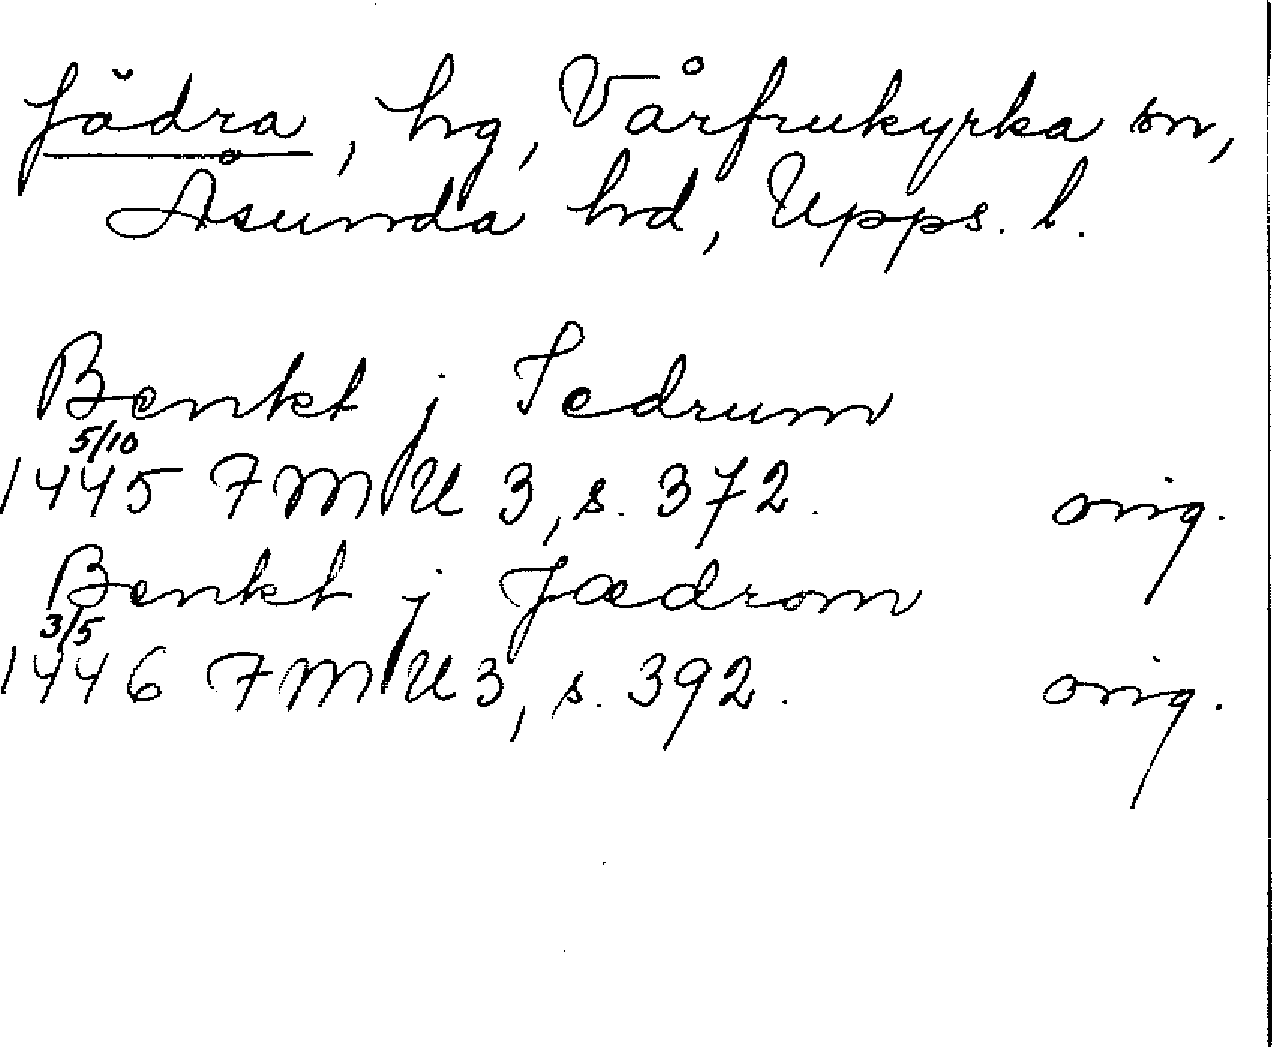 Jädra, hg, Vårfrukyrka sn,
Åsunda hd, Upps. l.
Benkt j Iedrum
5/10
1445 FMU 3, s. 372. orig.
Benkt j Jædrom
3/5
1446 FMU 3, s. 392. orig.